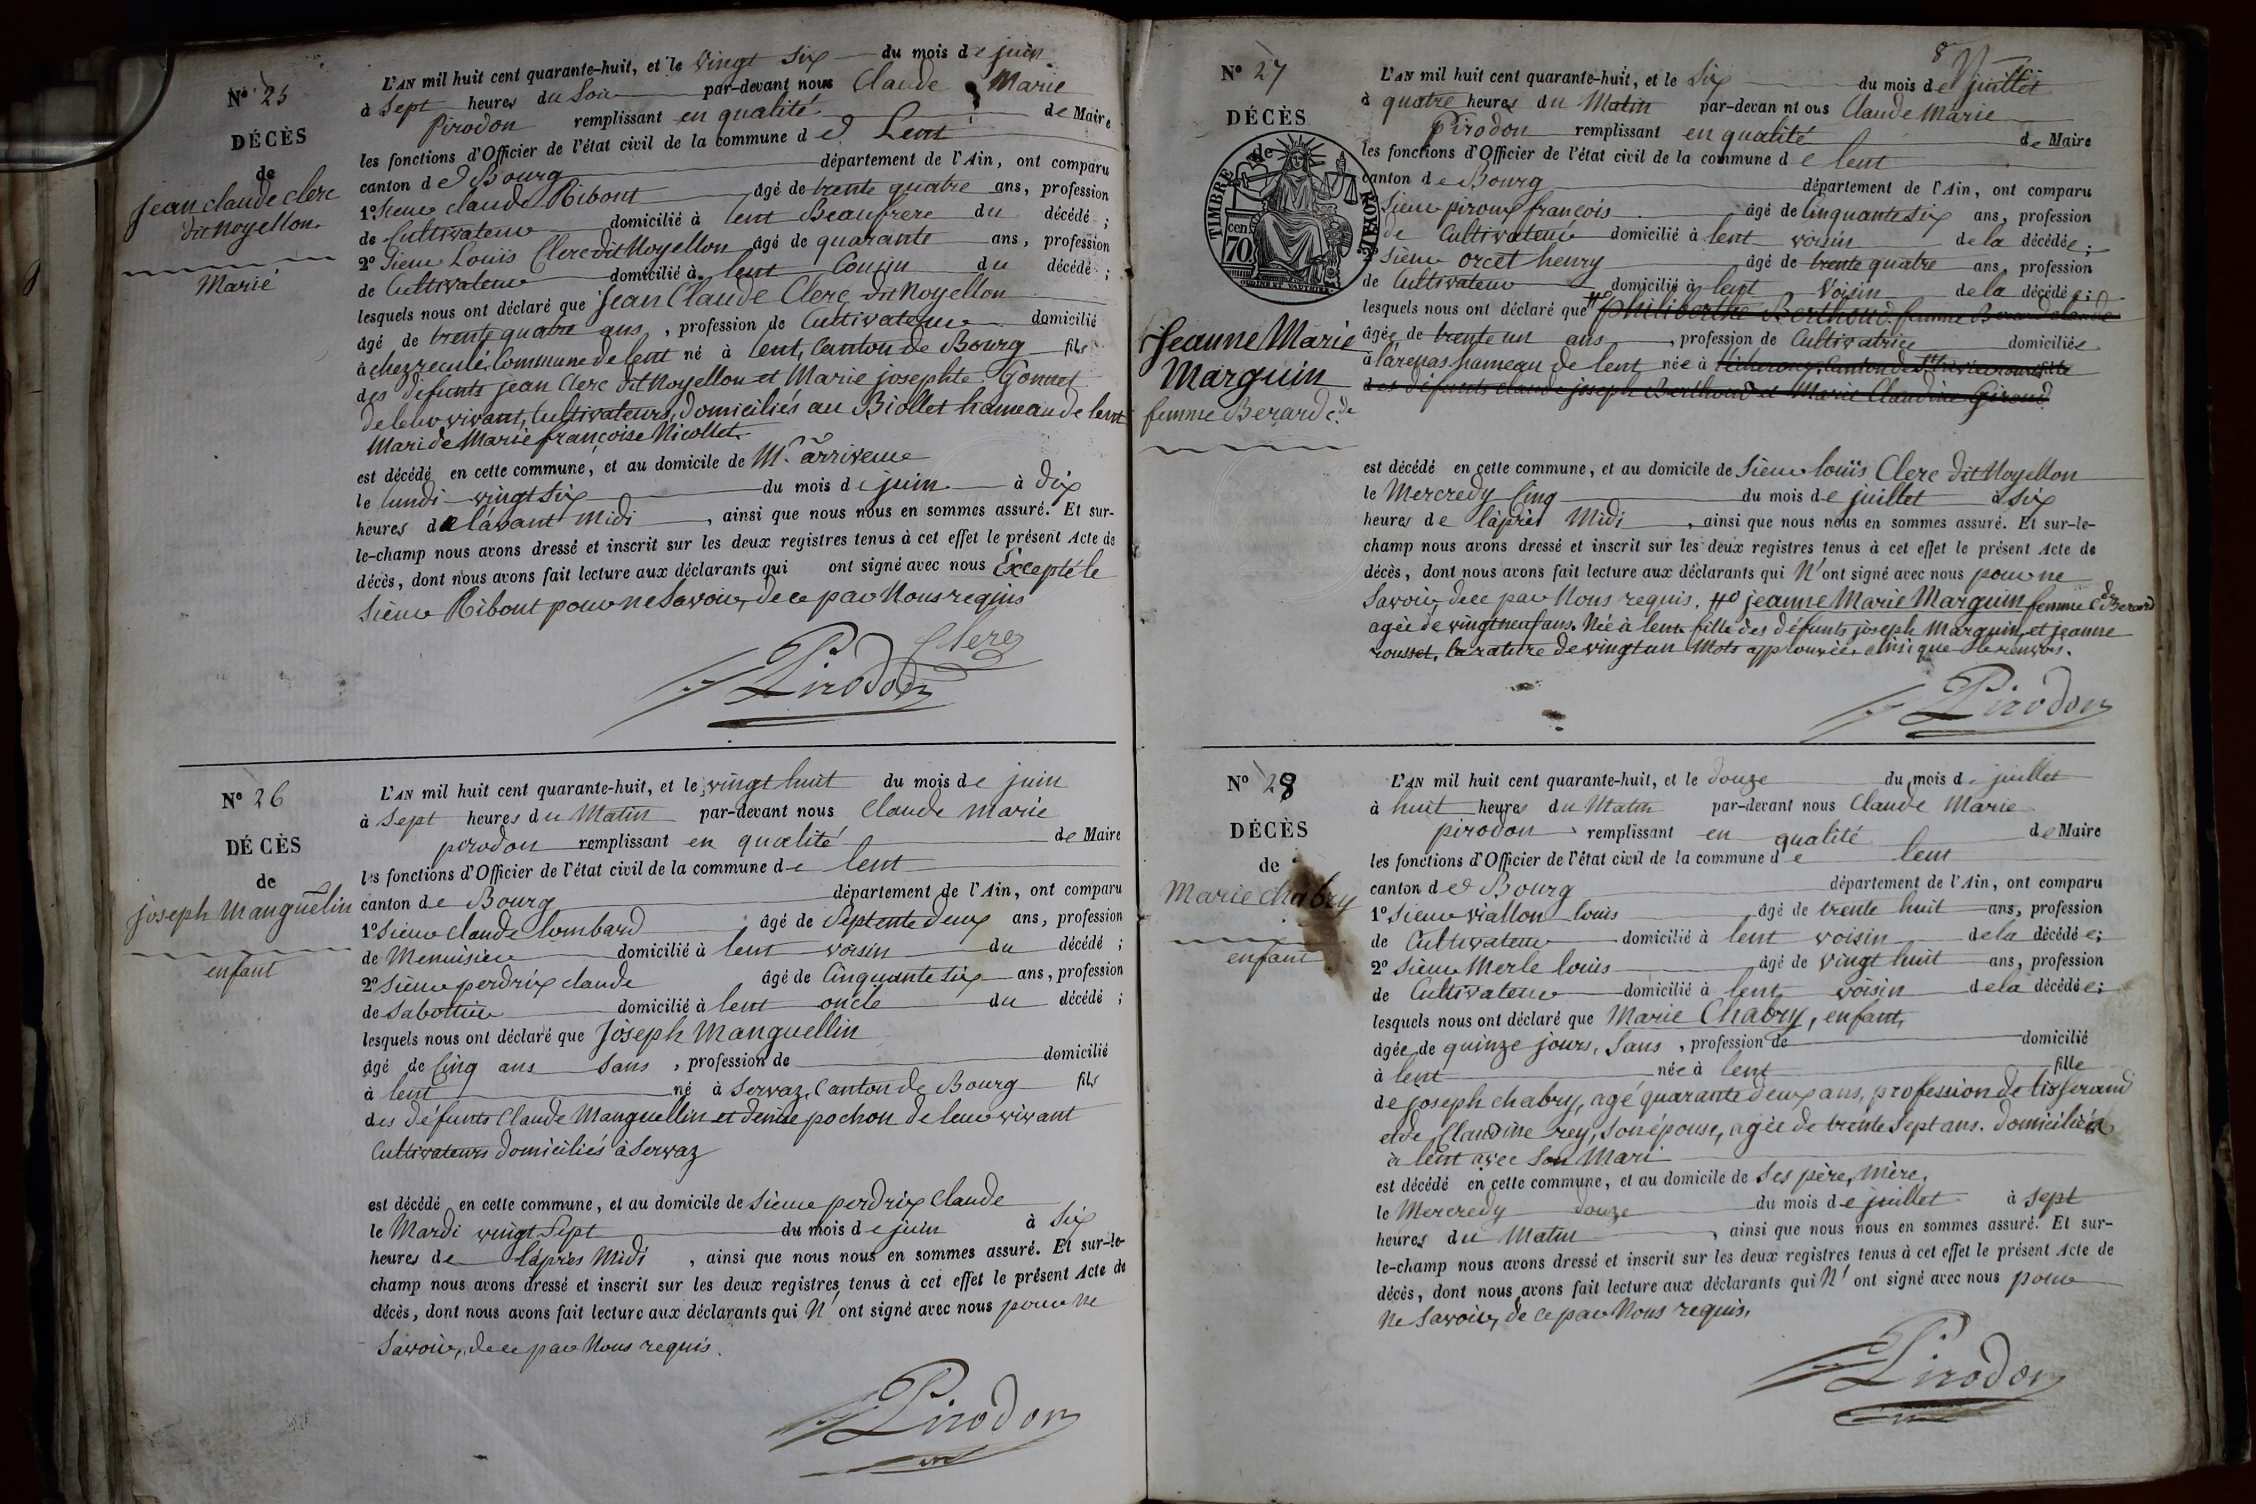 N° 25
DÉCÈS
de
jean claude clerc
dit Noyellon
Marié
L'AN mil huit cent quarante-huit, et le vingt Six du mois de juin
à Sept heures du Soir par-devant nous Claude Marie
Pirodon remplissant en qualité de Maire
les fonctions d'Officier de l'état civil de la commune de Lent
canton de Bourg département de l'Ain, ont comparu
1° Sieur claude Ribout âgé de trente quatre ans, profession
de Cultivateur domicilié à lent Beaufrere du décédé ;
2° Sieur Louis Clerc dit Noyellon âgé de quarante ans, profession
de Cultivateur domicilié à lent Cousin du décédé ;
lesquels nous ont déclaré que Jean Claude Clerc dit Noyellon
âgé de trente quatre ans, profession de Cultivateur domicilié
à chez reculé Commune de lent né à lent, Canton de Bourg fils
des défunts jean Clerc dit Noyellon et Marie josephte Gonnet
de leur vivant, Cultivateurs, domiciliés au Biollet hameau de lent
Mari de Marie françoise Nicollet.
est décédé en cette commune, et au domicile de M.
le lundi vingt Six du mois de juin à dix
heures de l'avant Midi, ainsi que nous nous en sommes assuré. Et sur-
le-champ nous avons dressé et inscrit sur les deux registres tenus à cet effet le présent Acte de
décès, dont nous avons fait lecture aux déclarants qui ont signé avec nous Excepté le
Sieur Ribout pour ne Savoir, de ce par Nous requis
Clerc
Pirodon
N° 26
DÉCÈS
de
joseph Manguelin
enfant
L'AN mil huit cent quarante-huit, et le vingt huit du mois de juin
à Sept heures du Matin par-devant nous Claude Marie
pirodon remplissant en qualité de Maire
les fonctions d'Officier de l'état civil de la commune de lent
canton de Bourg département de l'Ain, ont comparu
1° Sieur claude lombard âgé de Septente deux ans, profession
de Menuisier domicilié à lent voisin du décédé ;
2° Sieur perdrix claude âgé de Cinquante Six ans, profession
de Sabottier domicilié à lent oncle du décédé ;
lesquels nous ont déclaré que Joseph Manguellin
âgé de Cinq ans Sans, profession de domicilié
à lent né à Servaz, Canton de Bourg fils
des défunts Claude Manguellin et denise pochon de leur vivant
Cultivateurs domiciliés à Servaz
est décédé en cette commune, et au domicile de Sieur perdrix Claude
le Mardi vingt Sept du mois de juin à Six
heures de l'après Midi, ainsi que nous nous en sommes assuré. Et sur-le-
champ nous avons dressé et inscrit sur les deux registres tenus à cet effet le présent Acte de
décès, dont nous avons fait lecture aux déclarants qui N'ont signé avec nous pour ne
Savoir, de ce par Nous requis.
Pirodon
8
N° 27
DÉCÈS
de
TIMBRE ROYAL
70 cen
Jeanne Marie
Marguin
femme Berard Cde
L'AN mil huit cent quarante-huit, et le Six du mois de juillet
à quatre heures du Matin par-devan nt ous Claude Marie
Pirodon remplissant en qualité de Maire
les fonctions d'Officier de l'état civil de la commune de lent
canton de Bourg département de l'Ain, ont comparu
Sieur piroux françois âgé de Cinquante Six ans, profession
de Cultivateur domicilié à lent voisin de la décédée ;
Sieur orcet henry âgé de trente quatre ans, profession
de Cultivateur domicilié à lent Voisin de la décédée ;
lesquels nous ont déclaré que philiberthe Berthoud femme Berard claude
âgée de trente un ans, profession de Cultivatrice domiciliée
à larenas hameau de lent née à
des défunts claude joseph Berthoud et Marie Claudine Giroud
est décédé en cette commune, et au domicile de Sieur louis Clerc dit Noyellon
le Mercredy Cinq du mois de juillet à Six
heures de l'après Midi, ainsi que nous nous en sommes assuré. Et sur-le-
champ nous avons dressé et inscrit sur les deux registres tenus à cet effet le présent Acte de
décès, dont nous avons fait lecture aux déclarants qui N'ont signé avec nous pour ne
Savoir, de ce par Nous requis. jeanne Marie Marguin femme Cde Berard
agée de vingt neuf ans. Née à lent fille des défunts joseph Marguin, et jeanne
rousset, la rature de vingt un Mots approuvée, ainsi que le renvois.
Pirodon
N° 28
DÉCÈS
de
Marie Chabry
enfant
L'AN mil huit cent quarante-huit, et le douze du mois de juillet
à huit heures du Matin par-devant nous Claude Marie
pirodon remplissant en qualité de Maire
les fonctions d'Officier de l'état civil de la commune de lent
canton de Bourg département de l'Ain, ont comparu
1° Sieur viallon louis âgé de trente huit ans, profession
de Cultivateur domicilié à lent voisin de la décédée ;
2° Sieur Merle louis âgé de vingt huit ans, profession
de Cultivateur domicilié à lent voisin de la décédée ;
lesquels nous ont déclaré que Marie Chabry, enfant,
âgée de quinze jours, Sans, profession de domicilié
à lent née à lent fille
de joseph chabry, agé quarante deux ans, profession de tisserand
et de Claudine rey, Son épouse, agée de trente Sept ans. domiciliés
à lent avec Son Mari
est décédé en cette commune, et au domicile de Ses père, Mère,
le Mercredy douze du mois de juillet à Sept
heures du Matin, ainsi que nous nous en sommes assuré. Et sur-
le-champ nous avons dressé et inscrit sur les deux registres tenus à cet effet le présent Acte de
décès, dont nous avons fait lecture aux déclarants qui N'ont signé avec nous pour
Ne Savoir, de ce par Nous requis,
Pirodon